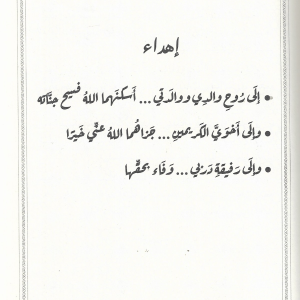 إهداء
• إلَى رُوحِ والدِي ووالدَتي ... أَسكنَهما اللهُ فَسيحَ جنَّاته
• وإلَى أخوَيَّ الكَريمينِ ... جَزاهُما اللهُ عنِّي خَيْرًا
• وإلَى رَفيقةِ دَربي ... وَفَاء بحقِّها